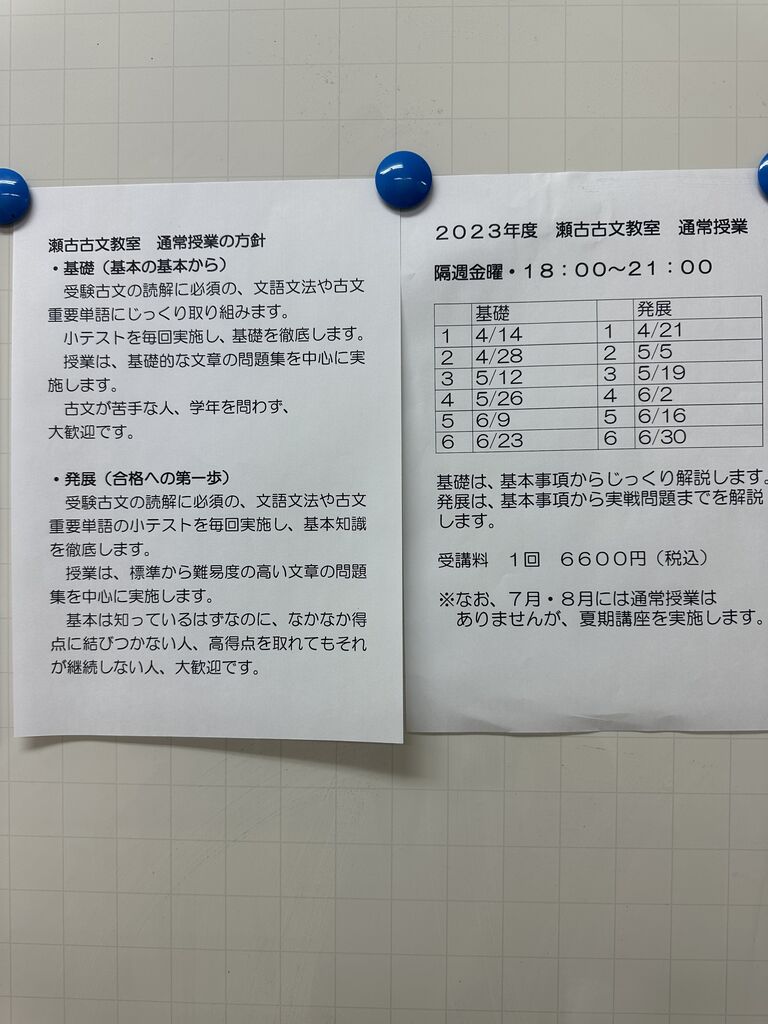 瀬古古文教室　通常授業の方針
・基礎（基本の基本から）
受験古文の読解に必須の、文語文法や古文
重要単語にじっくり取り組みます。
小テストを毎回実施し、基礎を徹底します。
授業は、基礎的な文章の問題集を中心に実
施します。
古文が苦手な人、学年を問わず、
大歓迎です。
・発展（合格への第一歩）
受験古文の読解に必須の、文語文法や古文
重要単語の小テストを毎回実施し、基本知識
を徹底します。
授業は、標準から難易度の高い文章の問題
集を中心に実施します。
基本は知っているはずなのに、なかなか得
点に結びつかない人、高得点を取れてもそれ
が継続しない人、大歓迎です。
２０２３年度　瀬古古文教室　通常授業
隔週金曜・１８：００～２１：００
基礎　発展
1 4/14 1 4/21
2 4/28 2 5/5
3 5/12 3 5/19
4 5/26 4 6/2
5 6/9 5 6/16
6 6/23 6 6/30
基礎は、基本事項からじっくり解説します。
発展は、基本事項から実戦問題までを解説
します。
受講料　１回　６６００円（税込）
※なお、７月・８月には通常授業は
ありませんが、夏期講座を実施します。